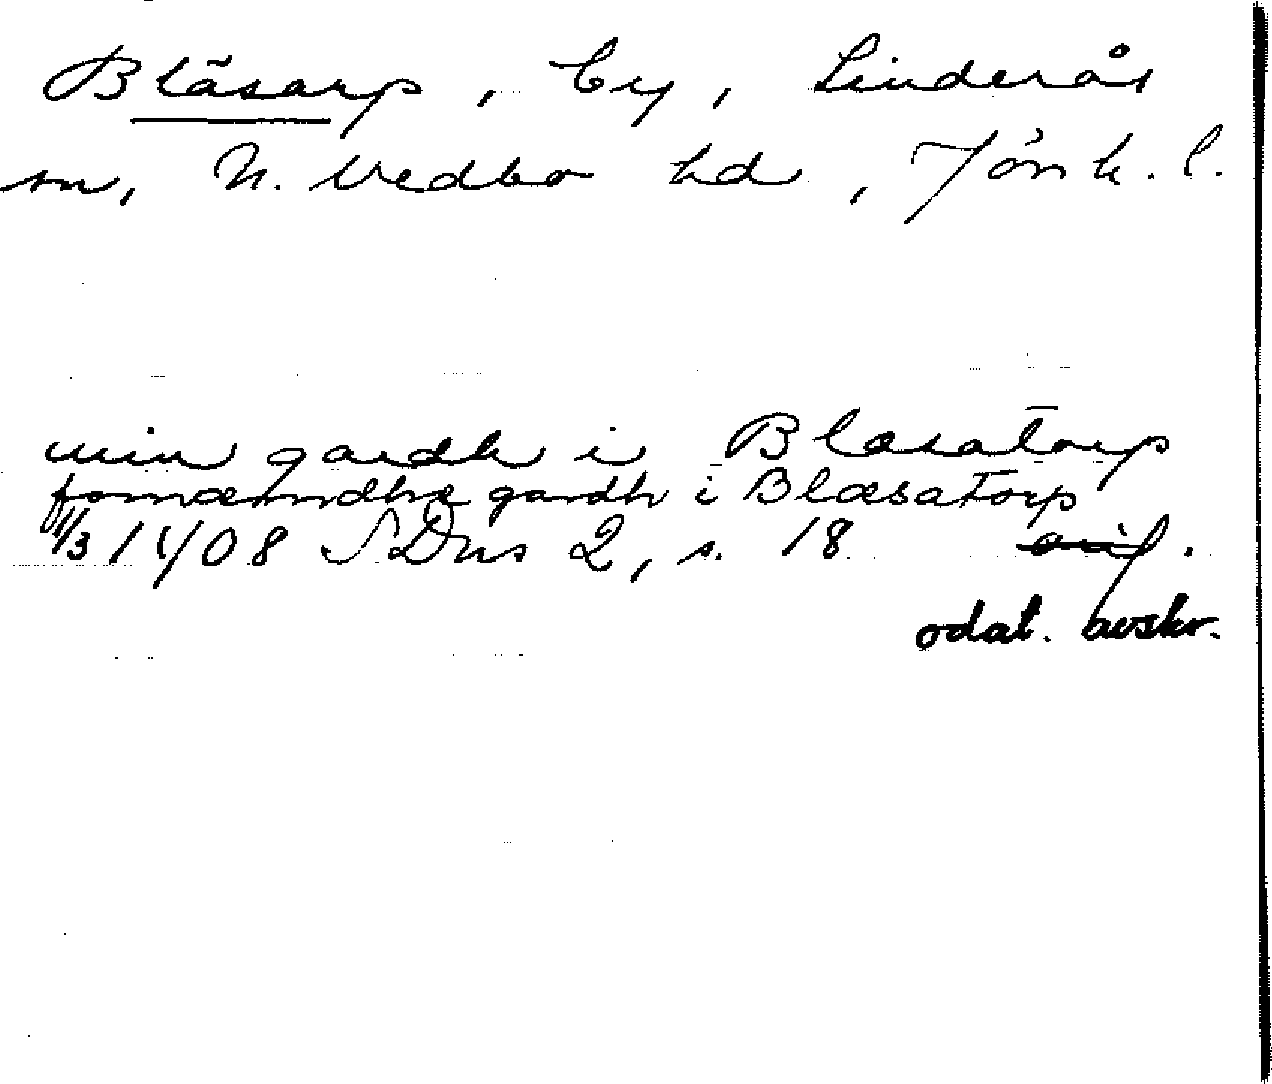 Bläsarp, by, Linderås
sn, N. Vedbo hd, Jönk. l.
min gardh i Blæsatorp
fornæmdhæ gardh i Blæsatorp
1/3 1408 SDns 2, s. 18 orig.
odat. avskr.